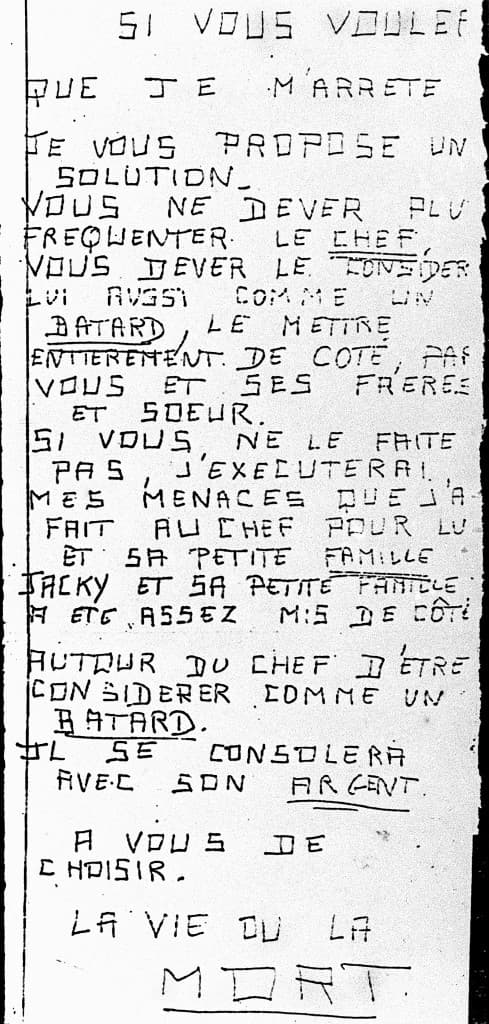 SI VOUS VOULEF
QUE JE M'ARRETE
JE VOUS PROPOSE UN
SOLUTION.
VOUS NE DEVER PLU
FREQUENTER. LE CHEF,
VOUS DEVER LE CONSIDER
LUI AUSSI COMME UN
BATARD, LE METTRE
ENTIEREMENT. DE COTÉ, PAR
VOUS ET SES FRERES
ET SOEUR.
SI VOUS, NE LE FAITE
PAS, J'EXECUTERAI,
MES MENACES QUE J'A
FAIT AU CHEF POUR LU
ET SA PETITE FAMILLE
JACKY ET SA PETITE FAMILLE
A ETE ASSEZ MIS DE CÔTÉ
AUTOUR DU CHEF D'ÊTRE
CONSIDERER COMME UN
BATARD.
IL SE CONSOLERA
AVEC SON ARGENT.
A VOUS DE
CHOISIR.
LA VIE OU LA
MORT.